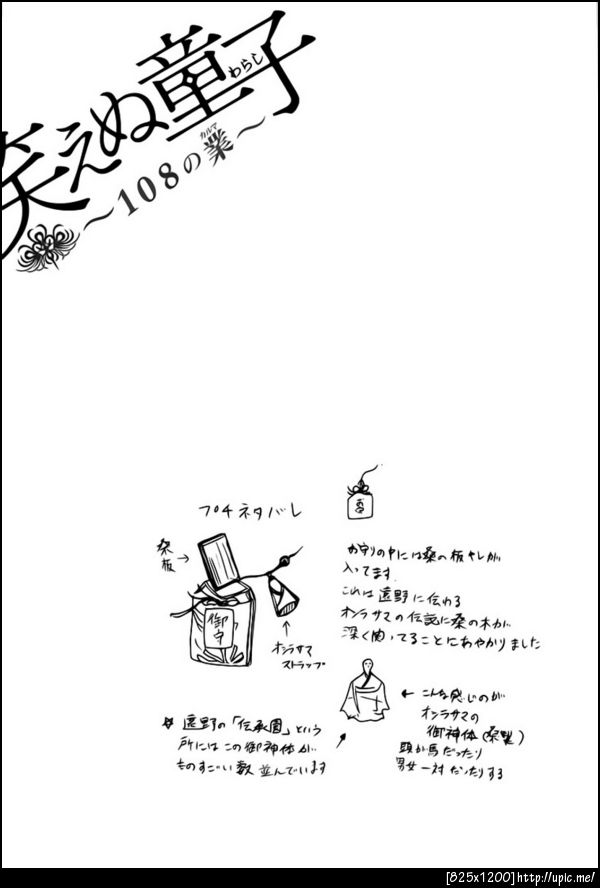 笑えぬ童子
わらし
～108の業～
カルマ
プチネタバレ
桑板→
御守
オシラサマ
ストラップ
お守りの中には桑の板キレが
入ってます。
これは遠野に伝わる
オシラサマの伝説に桑の木が
深く関ってることにあやかりました
← こんな感じのが
オシラサマの
御神体(桑製)
頭が馬だったり
男女一対だったりする
遠野の「伝承園」という
所にはこの御神体が
ものすごい数並んでいます
[825x1200]http://upic.me/